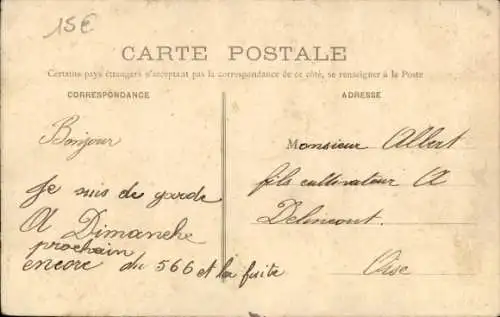 15€
CARTE POSTALE
Certains pays étrangers n'acceptant pas la correspondance de ce côté, se renseigner à la Poste
CORRESPONDANCE
Bonjour
Je suis de garde
A Dimanche
prochain
encore du 566 et la fuite
ADRESSE
Monsieur Albert
fils cultivateur A
Delincourt
Oise